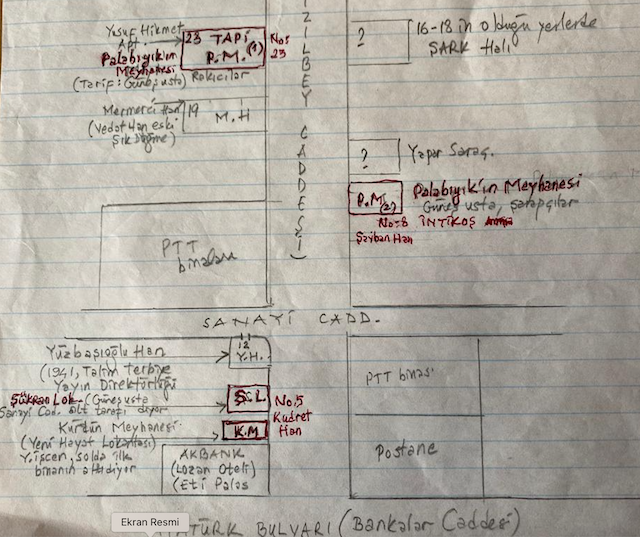 Yusuf Hikmet
Apt.
Palabıyık'ın
Meyhanesi
(Tarif: Güneş usta) Rakıcılar
23 TAPİ
P.M. (1)
No:
23
Mermerci Han
(Vedat Han eski
Şık Düğme)
19
M.H
ZİLBEY CADDESİ)
?
16-18 in olduğu yerlerde
ŞARK Halı
?
Yapar Saraç.
P.M (2)
Palabıyık'ın Meyhanesi
Güneş usta, şarapçılar
No:8 İNTİKOŞ
Şayban Han
PTT
binaları
SANAYİ CADD.
Yüzbaşıoğlu Han
(1941, Talim Terbiye
Yayın Direktörlüğü
12
Y.H.
Şükran Lok. (Güneş usta
Sanayi Cad. alt tarafı diyor
Ş.L
No.5
Kudret
Han
Kürdün Meyhanesi
(Yeni Hayat Lokantası)
Y. işcen, solda ilk
binanın altı diyor
K.M
AKBANK
(Lozan Oteli)
(Eti Palas
PTT binası
Postane
ATÜRK BULVARI (Bankalar Caddesi)
Ekran Resmi